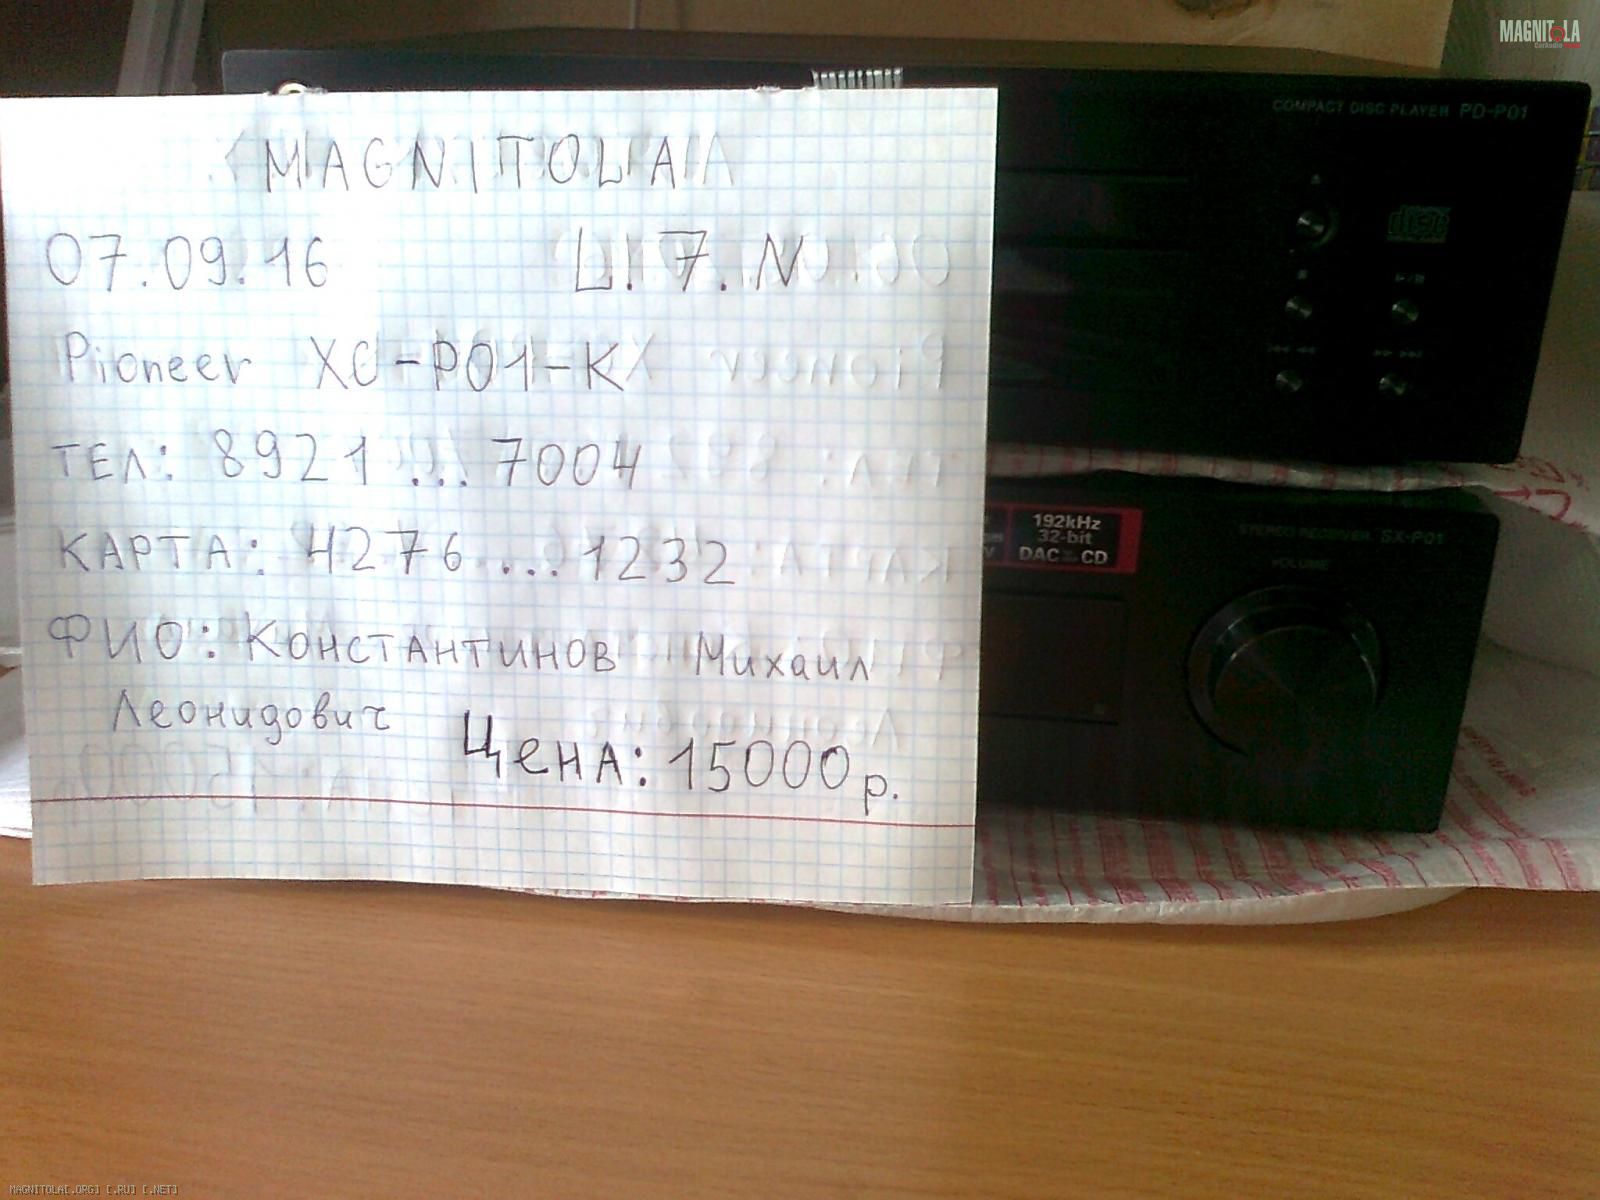 MAGNITOLA
CarAudio
COMPACT DISC PLAYER PD-P01
MAGNITOLA
07.09.16 L.7.N
Pioneer XC-P01-K
ТЕЛ: 8921 ... 7004
192kHz
32-bit
DAC CD
STEREO RECEIVER SX-P01
VOLUME
КАРТА: 4276 ... 1232
ФИО: Константинов Михаил
Леонидович
Цена: 15000р.
MAGNITOLA[.ORG] [.RU] [.NET]